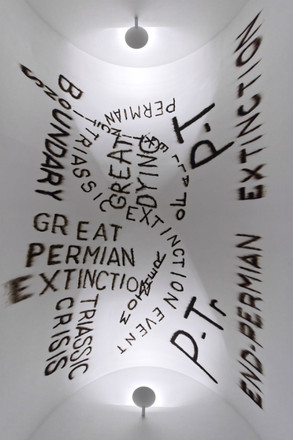 BOUNDARY
PERMIAN
TRIASSIC
EXTINCTION EVENT
GREAT
DYING
P-T
EXTINCTION
GREAT
PERMIAN
EXTINCTION
TRIASSIC
CRISIS
P-Tr
END-PERMIAN